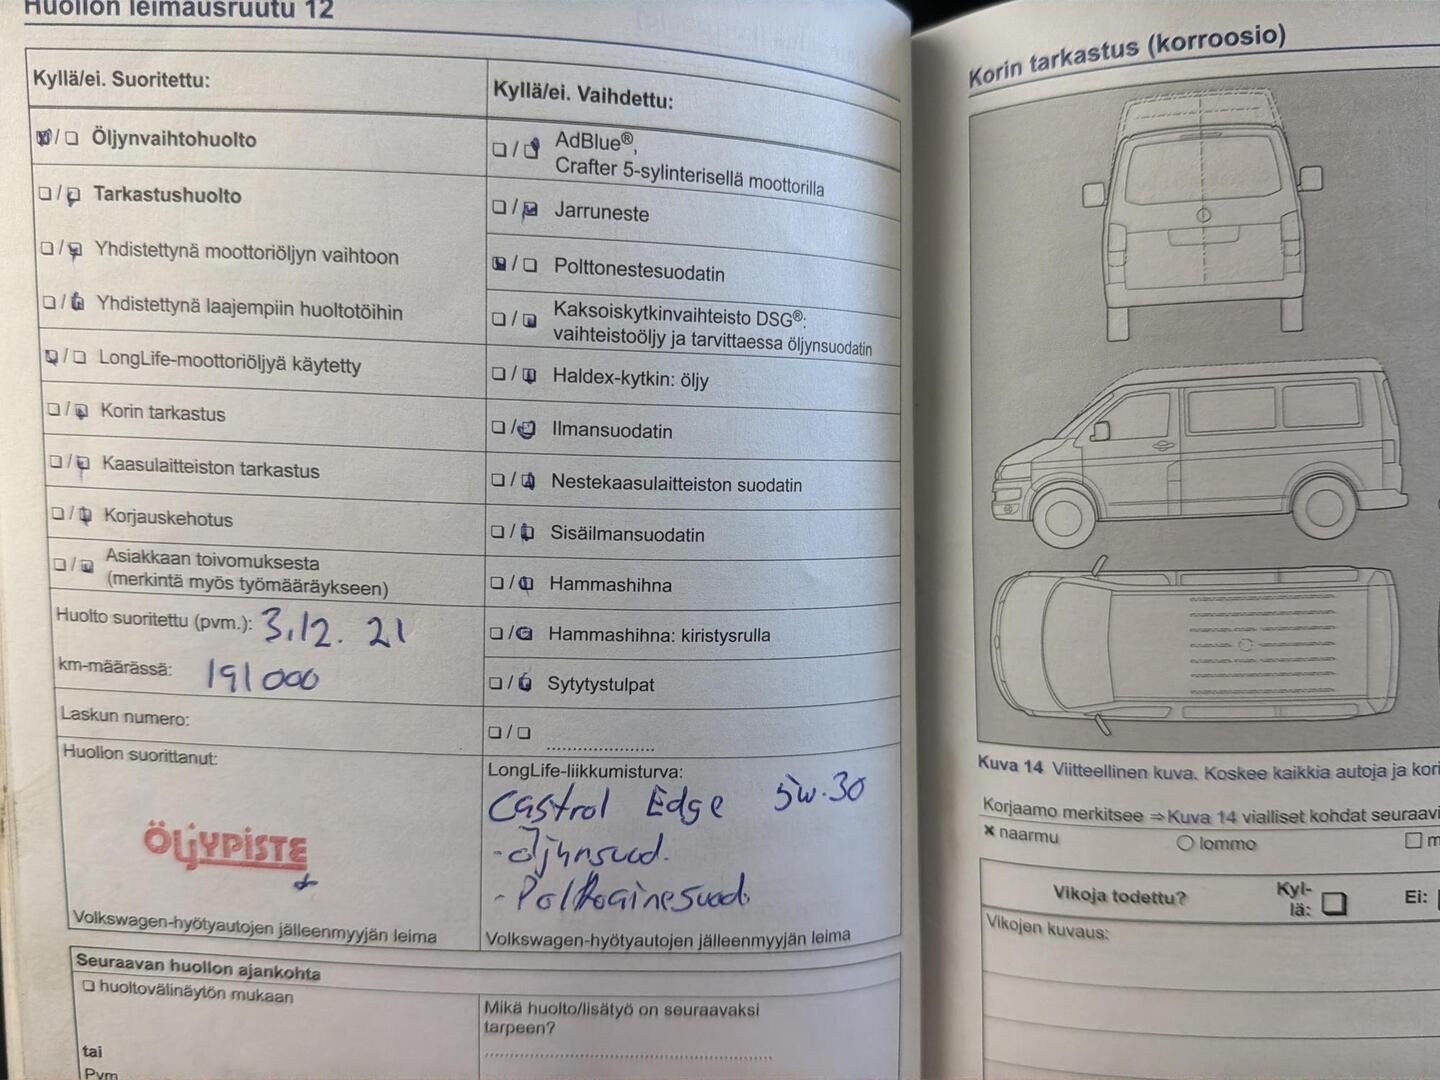 Huollon leimausruutu 12
Kyllä/ei. Suoritettu:
☒/☐ Öljynvaihtohuolto
☐/☒ Tarkastushuolto
☐/☒ Yhdistettynä moottoriöljyn vaihtoon
☐/☒ Yhdistettynä laajempiin huoltotöihin
☒/☐ LongLife-moottoriöljyä käytetty
☐/☒ Korin tarkastus
☐/☒ Kaasulaitteiston tarkastus
☐/☒ Korjauskehotus
☐/☒ Asiakkaan toivomuksesta
(merkintä myös työmääräykseen)
Huolto suoritettu (pvm.): 3.12. 21
km-määrässä: 191000
Laskun numero:
Huollon suorittanut:
ÖLJYPISTE
Volkswagen-hyötyautojen jälleenmyyjän leima
Kyllä/ei. Vaihdettu:
☐/☒ AdBlue®,
Crafter 5-sylinterisellä moottorilla
☐/☒ Jarruneste
☒/☐ Polttonestesuodatin
☐/☒ Kaksoiskytkinvaihteisto DSG®:
vaihteistoöljy ja tarvittaessa öljynsuodatin
☐/☒ Haldex-kytkin: öljy
☐/☒ Ilmansuodatin
☐/☒ Nestekaasulaitteiston suodatin
☐/☒ Sisäilmansuodatin
☐/☒ Hammashihna
☐/☒ Hammashihna: kiristysrulla
☐/☒ Sytytystulpat
☐/☐ ......................
LongLife-liikkumisturva:
Castrol Edge 5w-30
- öljynsuod.
- Polttoainesuod.
Volkswagen-hyötyautojen jälleenmyyjän leima
Seuraavan huollon ajankohta
☐ huoltovälinäytön mukaan
tai
Pvm
Mikä huolto/lisätyö on seuraavaksi
tarpeen?
Korin tarkastus (korroosio)
Kuva 14 Viitteellinen kuva. Koskee kaikkia autoja ja kori
Korjaamo merkitsee ⇒ Kuva 14 vialliset kohdat seuraavi
× naarmu ○ lommo ☐ m
Vikoja todettu? Kyl-
lä: ☐ Ei:
Vikojen kuvaus: